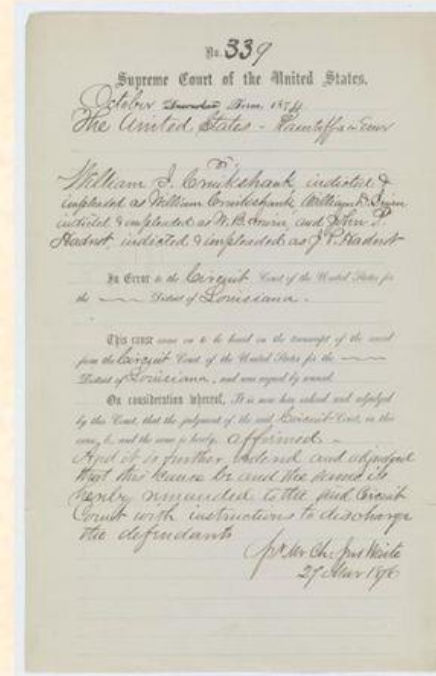 No. 339
Supreme Court of the United States.
October December Term, 1874
The United States - Plaintiffs in Error
vs
William J. Cruikshank, indicted &
impleaded as William Cruikshank, William D. Irwin
indicted & impleaded as W. B. Irwin, and John P.
Hadnot, indicted & impleaded as J. P. Hadnot
In Error to the Circuit Court of the United States for
the District of Louisiana.
This cause came on to be heard on the transcript of the record
from the Circuit Court of the United States for the
District of Louisiana, and was argued by counsel.
On consideration whereof, It is now here ordered and adjudged
by this Court, that the judgment of the said Circuit Court, in this
cause, be, and the same is hereby, affirmed -
And it is further ordered and adjudged
that this cause be and the same is
hereby remanded to the said Circuit
Court with instructions to discharge
the defendants
pr Mr Ch. Jus Waite
27 Mar 1876